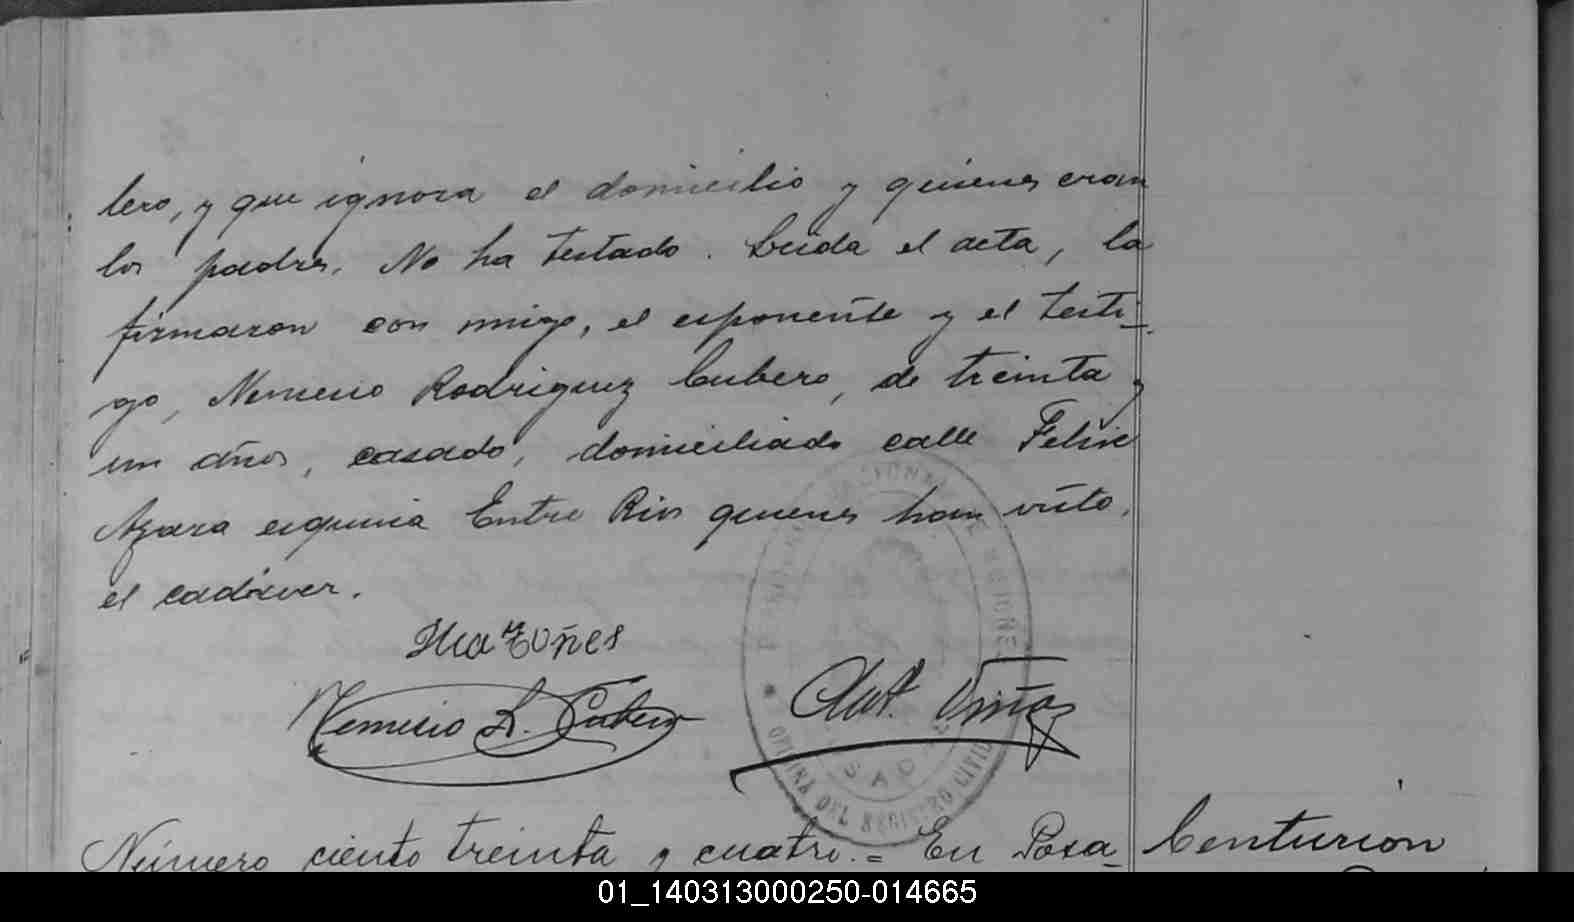 lero, y que ignora el domicilio y quienes eran
los padres. No ha testado. Leida el acta, la
firmaron con migo, el esponente y el testi-
go, Nemesio Rodriguez Cubero, de treinta y
un años, casado, domiciliado calle Felix
Azara esquina Entre Rios quienes han visto
el cadáver.
Nemesio R. Cubero
Ant. Viña
OFICINA DEL REGISTRO CIVIL
Número ciento treinta y cuatro.= En Posa-
Centurion
01_140313000250-014665